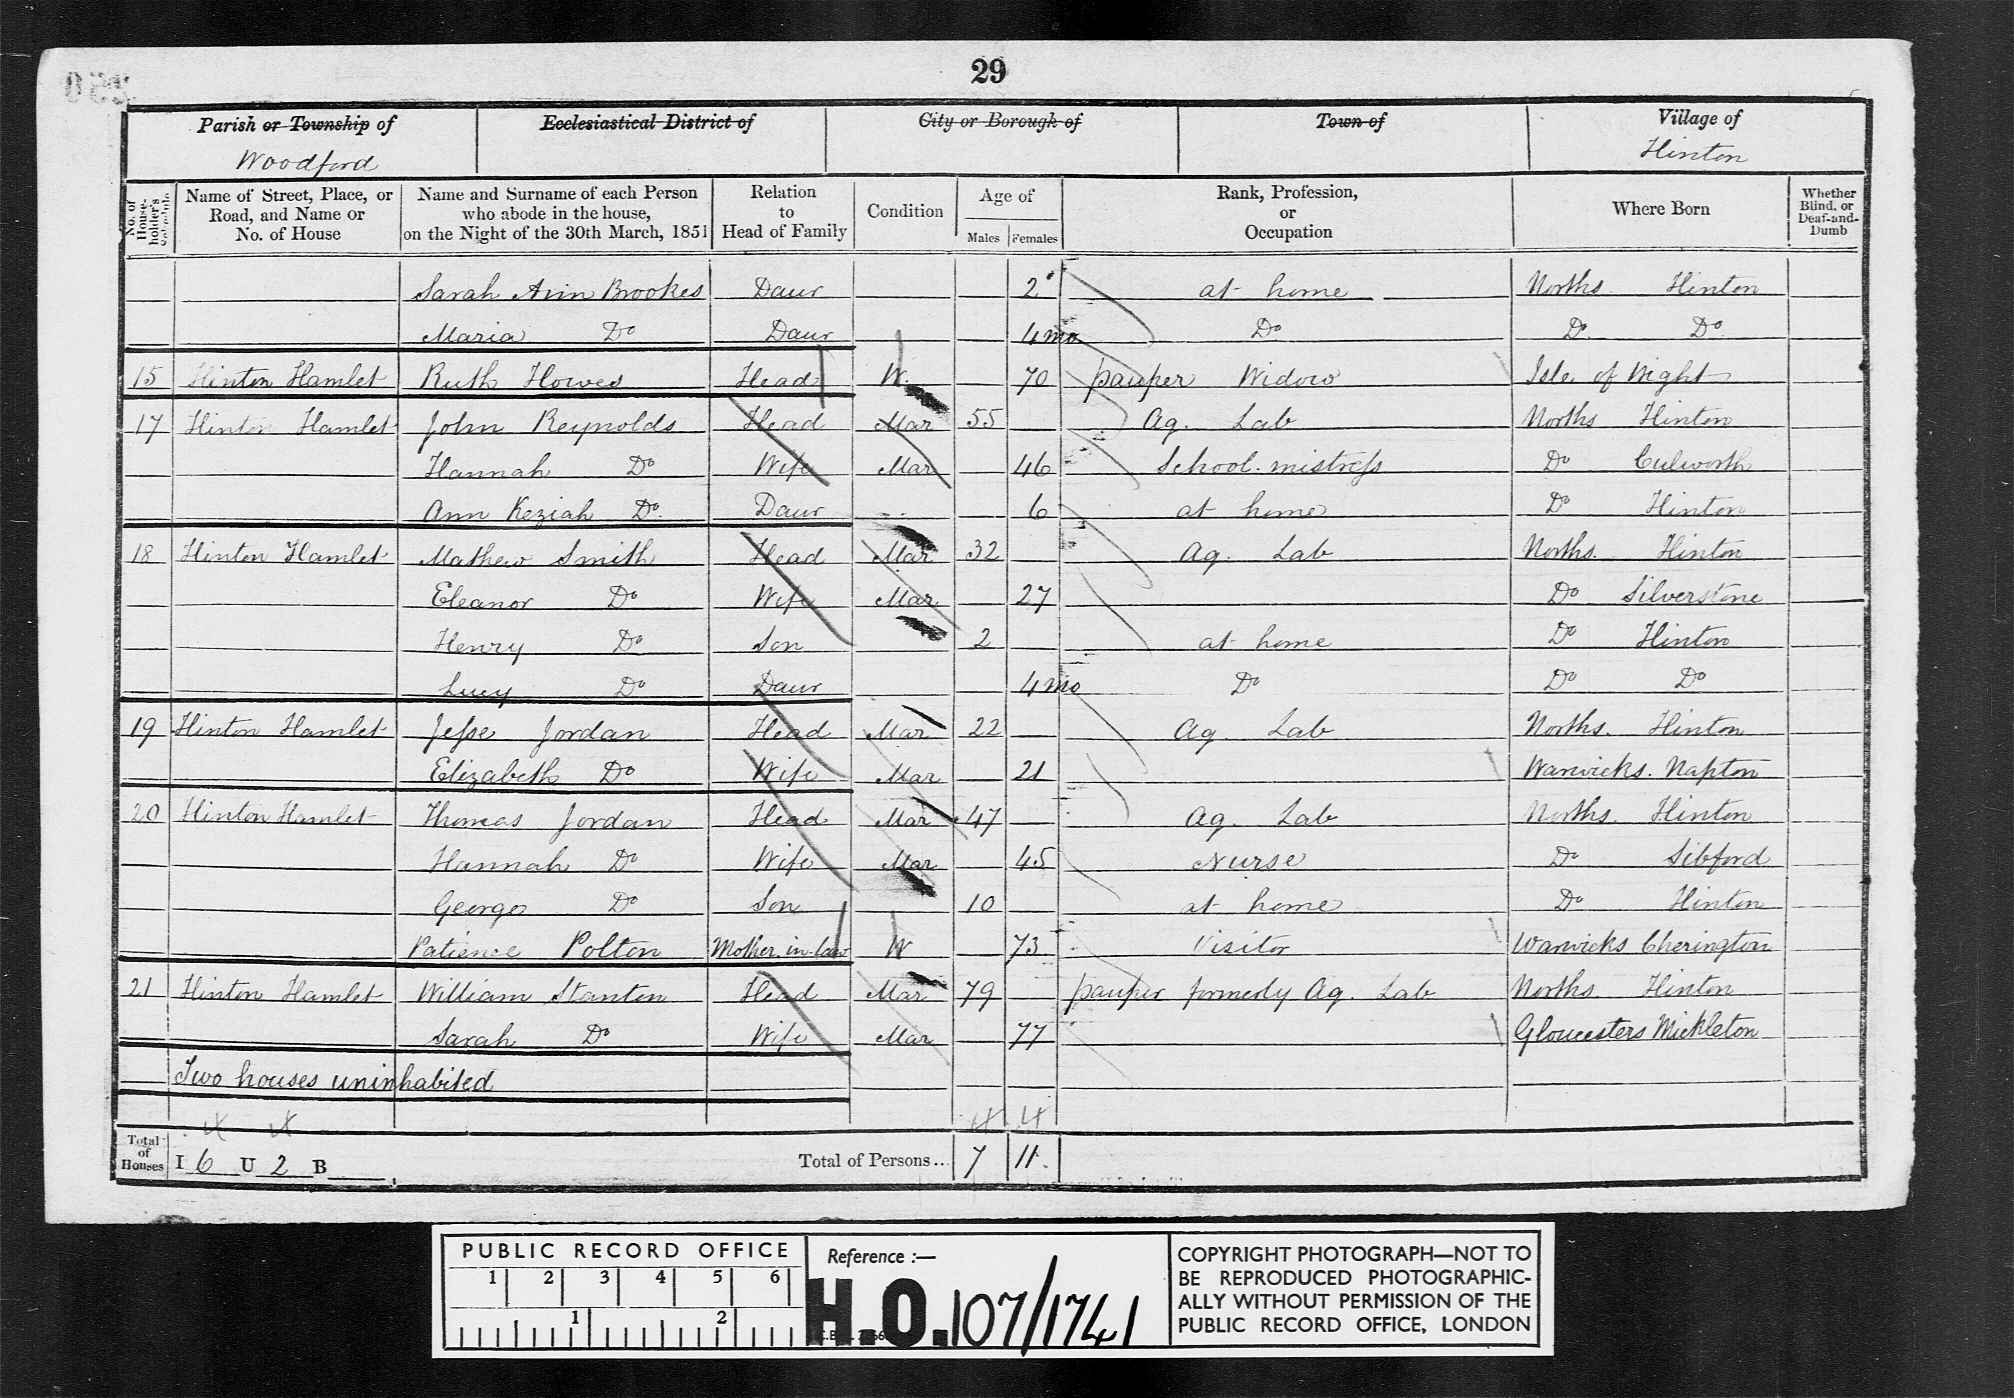 29
Parish or Township of Ecclesiastical District of City or Borough of Town of Village of
Woodford Hinton
No. of House-holder's Schedule Name of Street, Place, or Road, and Name or No. of House Name and Surname of each Person who abode in the house, on the Night of the 30th March, 1851 Relation to Head of Family Condition Age of Males Females Rank, Profession, or Occupation Where Born Whether Blind, or Deaf-and-Dumb
Sarah Ann Brookes Daur 2 at home Norths Hinton
Maria Do Daur 4 mo Do Do Do
15 Hinton Hamlet Ruth Howes Head W. 70 pauper Widow Isle of Wight
17 Hinton Hamlet John Reynolds Head Mar 55 Ag. Lab Norths Hinton
Hannah Do Wife Mar 46 School-mistress Do Culworth
Ann Keziah Do Daur 6 at home Do Hinton
18 Hinton Hamlet Mathew Smith Head Mar 32 Ag. Lab Norths. Hinton
Eleanor Do Wife Mar 27 Do Silverstone
Henry Do Son 2 at home Do Hinton
Lucy Do Daur 4 mo Do Do Do
19 Hinton Hamlet Jesse Jordan Head Mar 22 Ag. Lab Norths. Hinton
Elizabeth Do Wife Mar 21 Warwicks. Napton
20 Hinton Hamlet Thomas Jordan Head Mar 47 Ag. Lab Norths. Hinton
Hannah Do Wife Mar 45 Nurse Do Sibford
George Do Son 10 at home Do Hinton
Patience Polton Mother-in-law W 73 Visitor Warwicks Cherington
21 Hinton Hamlet William Stanton Head Mar 79 pauper formerly Ag. Lab Norths. Hinton
Sarah Do Wife Mar 77 Gloucesters Mickleton
Two houses uninhabited
Total of Houses I 6 U 2 B Total of Persons... 7 11.
PUBLIC RECORD OFFICE Reference :—
1 2 3 4 5 6
1 2
H.O. 107/1741
COPYRIGHT PHOTOGRAPH—NOT TO
BE REPRODUCED PHOTOGRAPHIC-
ALLY WITHOUT PERMISSION OF THE
PUBLIC RECORD OFFICE, LONDON